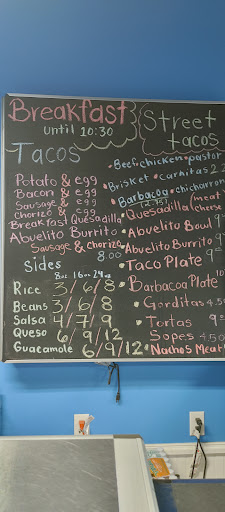 Breakfast
until 10:30
Tacos
Potato & egg
Bacon & egg
Sausage & egg
Chorizo & egg
Breakfast Quesadilla
Abuelito Burrito
Sausage & Chorizo
8.00
Sides
8oz 16oz 24oz
Rice 3/6/8
Beans 3/6/8
Salsa 4/7/9
Queso 6/9/12
Guacamole 6/9/12
Street
tacos
• Beef • chicken • pastor
• Brisket • carnitas
• Barbacoa • chicharron
(2.95)
• Quesadilla (meat
cheese
• Abuelito Bowl 9
• Abuelito Burrito 9
• Taco Plate 9
• Barbacoa Plate 10
• Gorditas 4.50
• Tortas 9
Sopes 4.50
• Nachos Meat